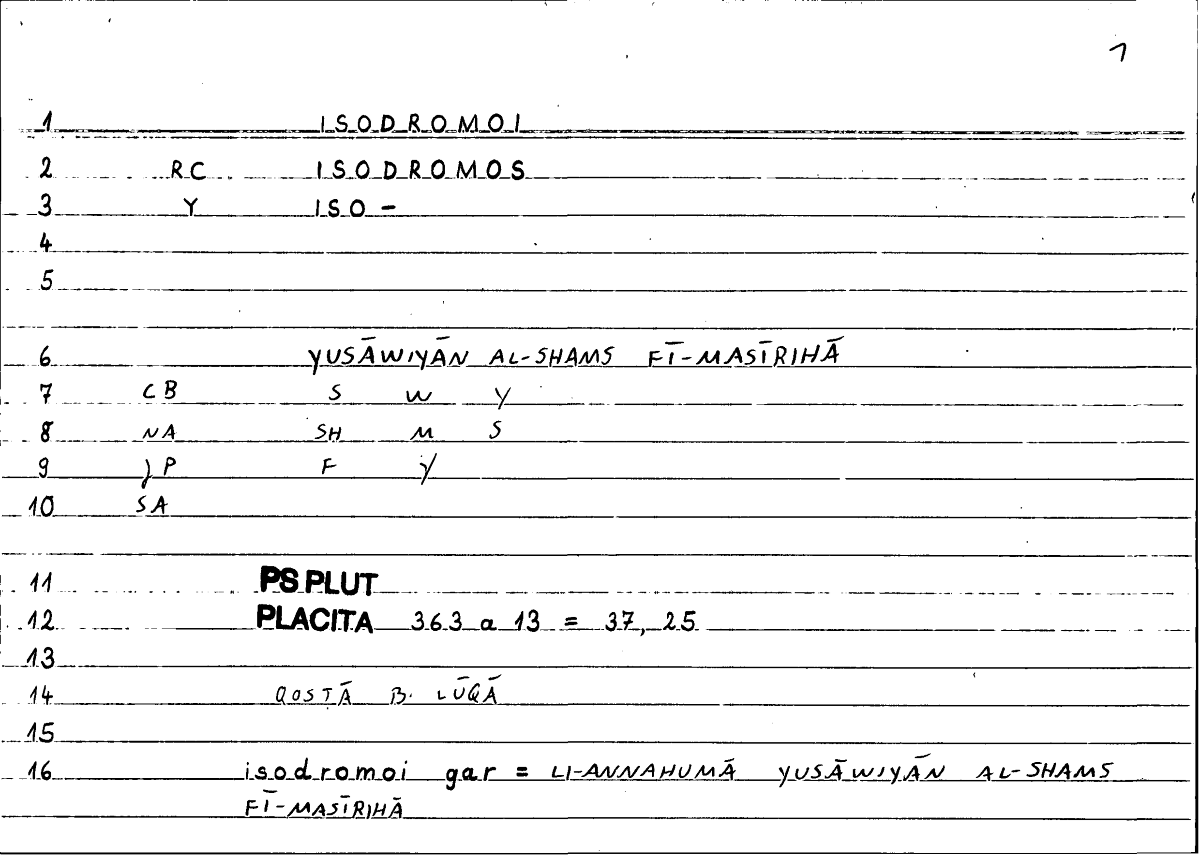 1
1 ISODROMOI
2 RC ISODROMOS
3 Y ISO -
4
5
6 YUSĀWIYĀN AL-SHAMS FĪ-MASĪRIHĀ
7 CB S W Y
8 NA SH M S
9 JP F Y
10 SA
11 PS PLUT
12 PLACITA 363 a 13 = 37, 25
13
14 QOSṬĀ B. LŪQĀ
15
16 isodromoi gar = LI-ANNAHUMĀ YUSĀWIYĀN AL-SHAMS
FĪ-MASĪRIHĀ